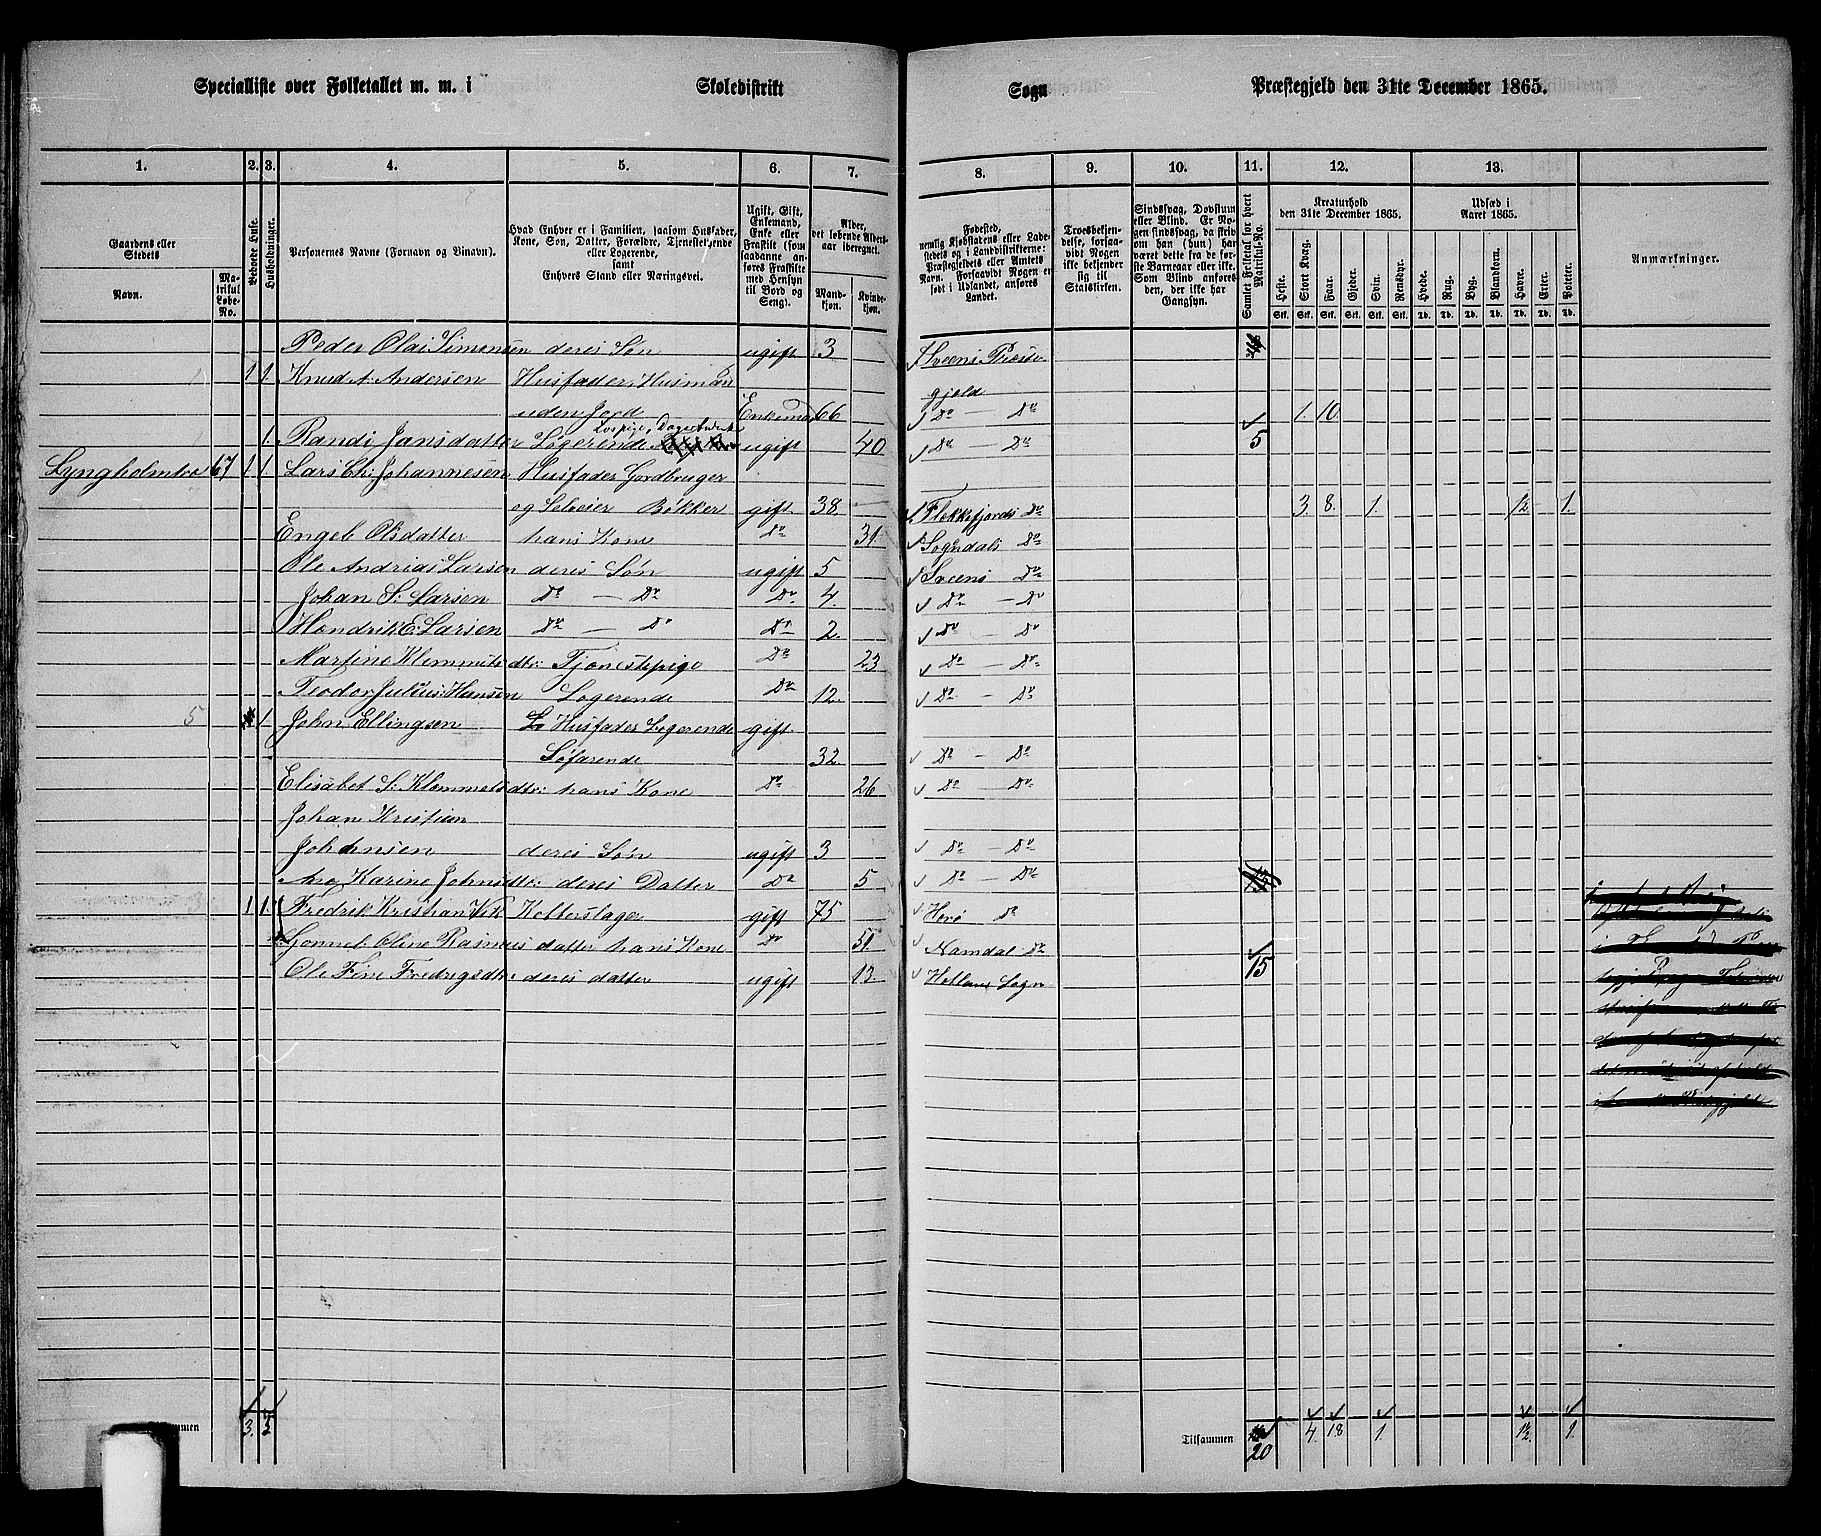 Specialliste over Folketallet m. m. i Skoledistrikt Sogn Præstegjeld den 31te December 1865.
1. 2. 3. 4. 5. 6. 7. 8. 9. 10. 11. 12. 13.
Gaardens eller Stedets
Navn.
Matrikul Løbe-No.
Bebvede Huse.
Husholdninger.
Personernes Navne (Fornavn og Binavn).
Hvad Enhver er i Familien, saasom Husfader, Kone, Søn, Datter, Forældre, Tjenestetyende eller Logerende, samt Enhvers Stand eller Næringsvei.
Ugift, Gift, Enkemand, Enke eller Fraskilt (som saadanne anføres Fraskilte med Hensyn til Bord og Seng).
Alder, det løbende Aldersaar iberegnet.
Mandkjøn. Kvindekjøn.
Fødested, nemlig Kjøbstadens eller Ladestedets og i Landdistrikterne: Præstegjeldets eller Amtets Navn. Forsaavidt Nogen er født i Udlandet, anføres Landet.
Troesbekjendelse, forsaavidt Nogen ikke bekjender sig til Statskirken.
Sindssvag, Døvstum eller Blind. Er Nogen sindssvag, da skrives om han (hun) har været dette fra de første Barneaar eller ikke. Som Blind anføres den, der ikke har Gangsyn.
Samlet Folketal for hvert Matrikul-No.
Kreaturhold den 31te December 1865.
Heste. Stort Kvæg. Faar. Gjeder. Svin. Rensdyr.
Stk. Stk. Stk. Stk. Stk. Stk.
Udsæd i Aaret 1865.
Hvede. Rug. Byg. Blandkorn. Havre. Erter. Poteter.
Td. Td. Td. Td. Td. Td. Td.
Anmærkninger.
Peder Olai Simonsen deres Søn ugift 3 Sveens Præste
1 1. Knud A. Andersen Husfader, Husman gjeld
uden Jord Enkema 66 Do — Do 1. 10.
1. Randi Jansdatter Logerende ugift 40 Do — Do 5
Lyngholmen 67 1 1. Lars Ch: Johannesen Husfader Gordbruger
og Seleier Bøkker gift 38. Flekkefjords Do 3. 8. 1. 1/2 1.
Engeb. Olsdatter hans Kone Do 31. Sogndals Do
Ole Andrias Larsen deres Søn ugift 5 Sveens Do
Johan S: Larsen Do — Do Do 4. Do — Do
Hendrik E: Larsen Do — Do Do 2. Do — Do
Martine Klemmitsdtr: Tjenestepige Do 23 Do — Do
Teodor Julius Hansen Logerende Do 12. Do — Do
5 1. John Ellingsen Husfader Logerende gift
Søfarende 32. Do — Do
Elisabet S: Klemmetsdtr: hans Kone Do 26 Do — Do
Johan Kristian
Johansen deres Søn ugift 3 Do — Do
Ane Karine Johnsdtr: deres Datter Do 5 Do — Do
3 1. 1. Fredrik Kristian Vik Kobberslager gift 75 Herø Do
Gonnel. Oline Rasmus datter hans Kone Do 51. Namdal Do
Ole Fine Fredrigsdtr: deres datter ugift 13. Hollans Sogn 15
Tilsammen 3. 5 Tilsammen 20 4. 18 1. 1/2. 1.